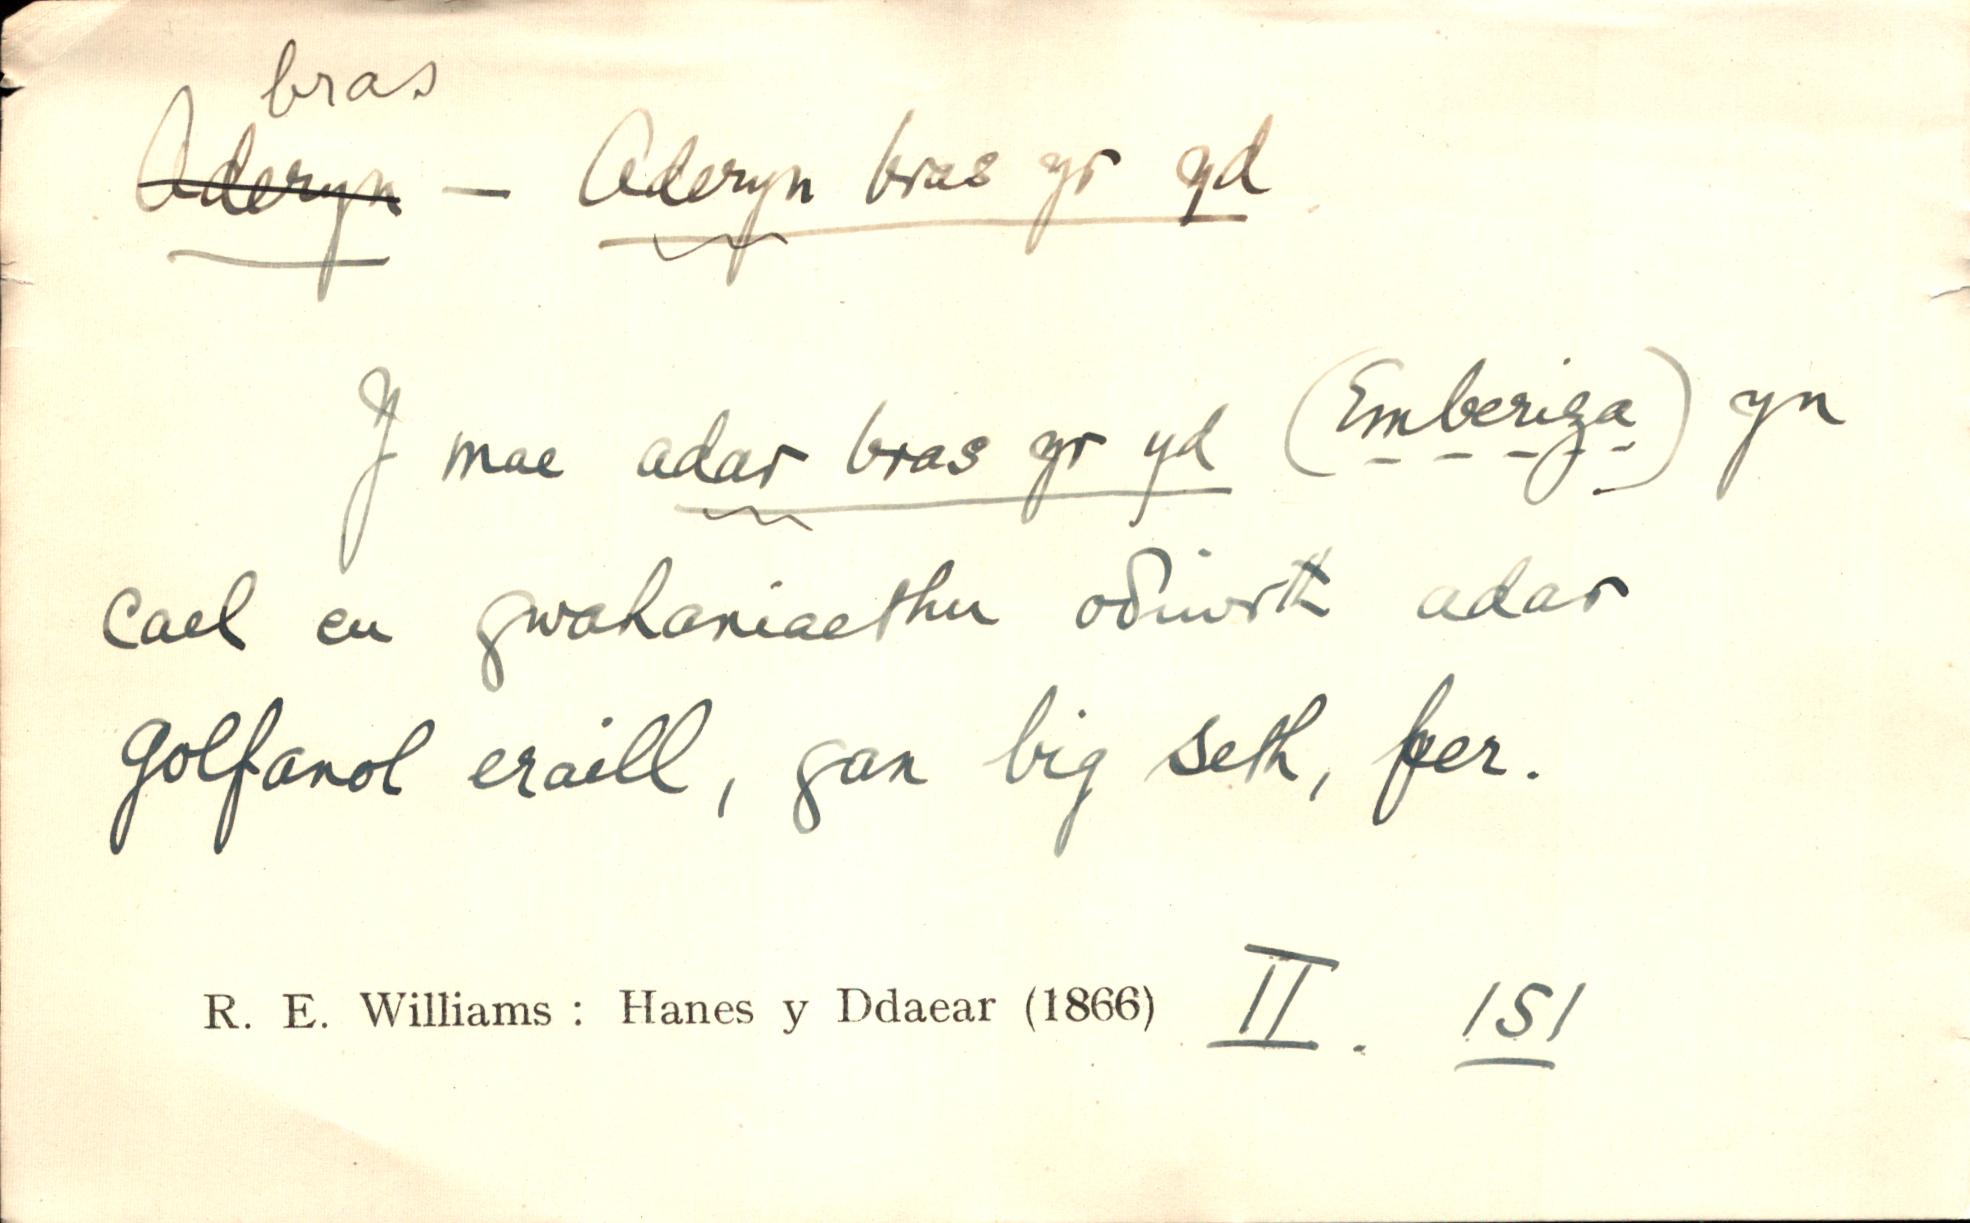 bras
Aderyn — Aderyn bras yr yd
Y mae adar bras yr yd (Emberiza) yn
cael eu gwahaniaethu oδiwrth adar
golfanol eraill, gan big seth, fer.
R. E. Williams : Hanes y Ddaear (1866) II. 151